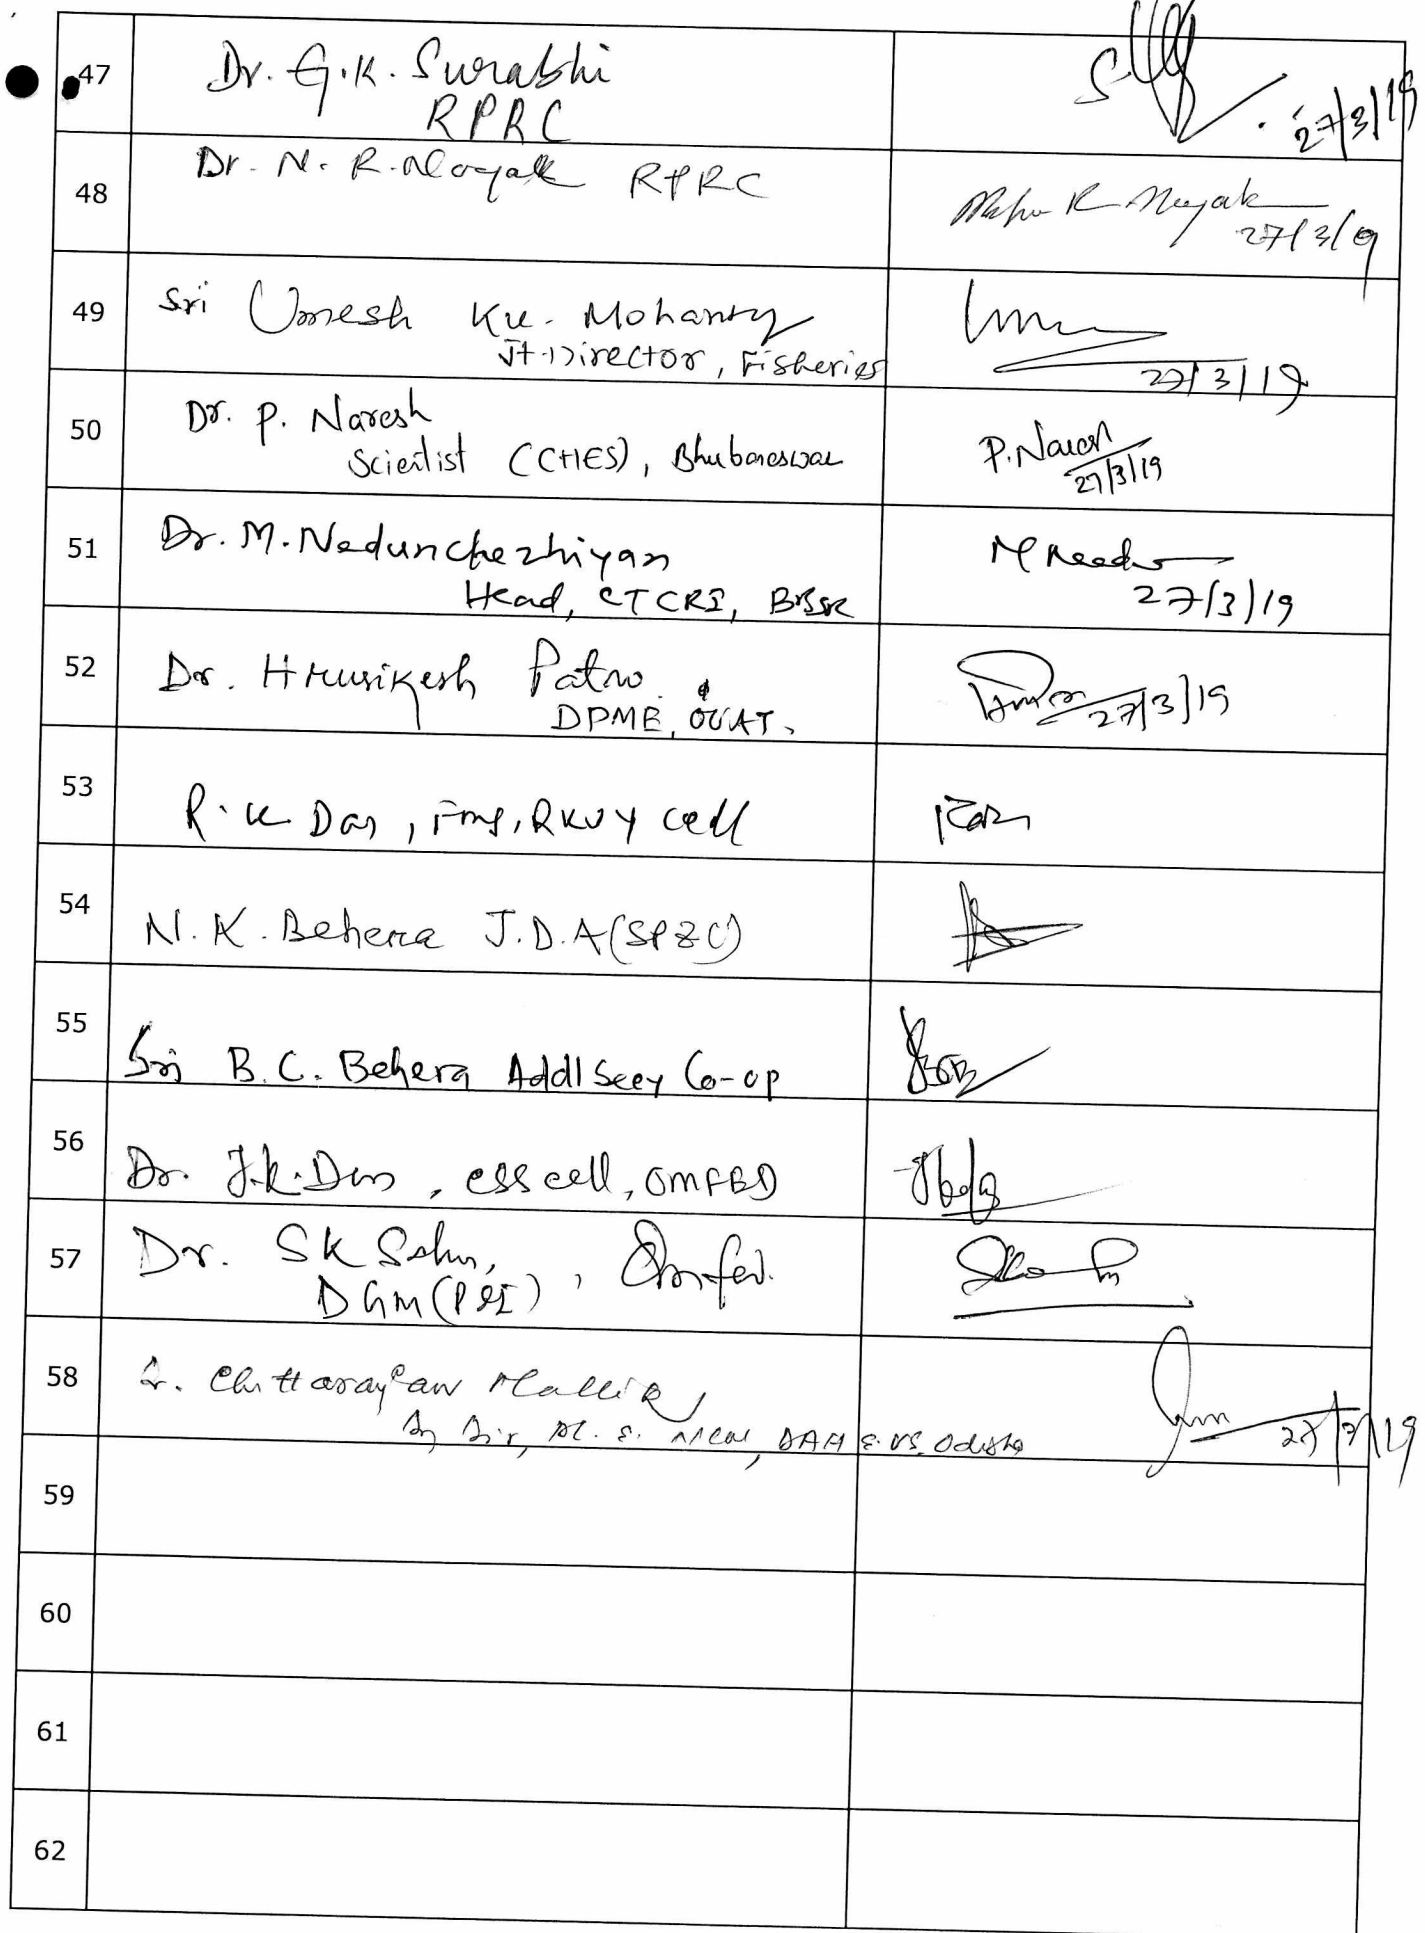 47 Dr. G.K. Surabhi
RPRC
27/3/19
48 Dr. N. R. Nayak RPRC
R Nayak
27/3/19
49 Sri Umesh Ku. Mohanty
Jt. Director, Fisheries
27/3/19
50 Dr. P. Naresh
Scientist (CHES), Bhubaneswar
P. Naresh
27/3/19
51 Dr. M. Nedunchezhiyan
Head, CTCRI, BBSR
27/3/19
52 Dr. Hrusikesh Patro
DPME, OUAT.
27/3/19
53 R. K Das, RKVY Cell
54 N. K. Behera J.D.A
55 Sri B. C. Behera Addl Secy Co-op
56 Dr. J.K. Das, cell, OMFED
57 Dr. SK Sahu,
DGM, Omfed.
58 Chittaranjan Mallik,
Odisha
27/3/19
59
60
61
62